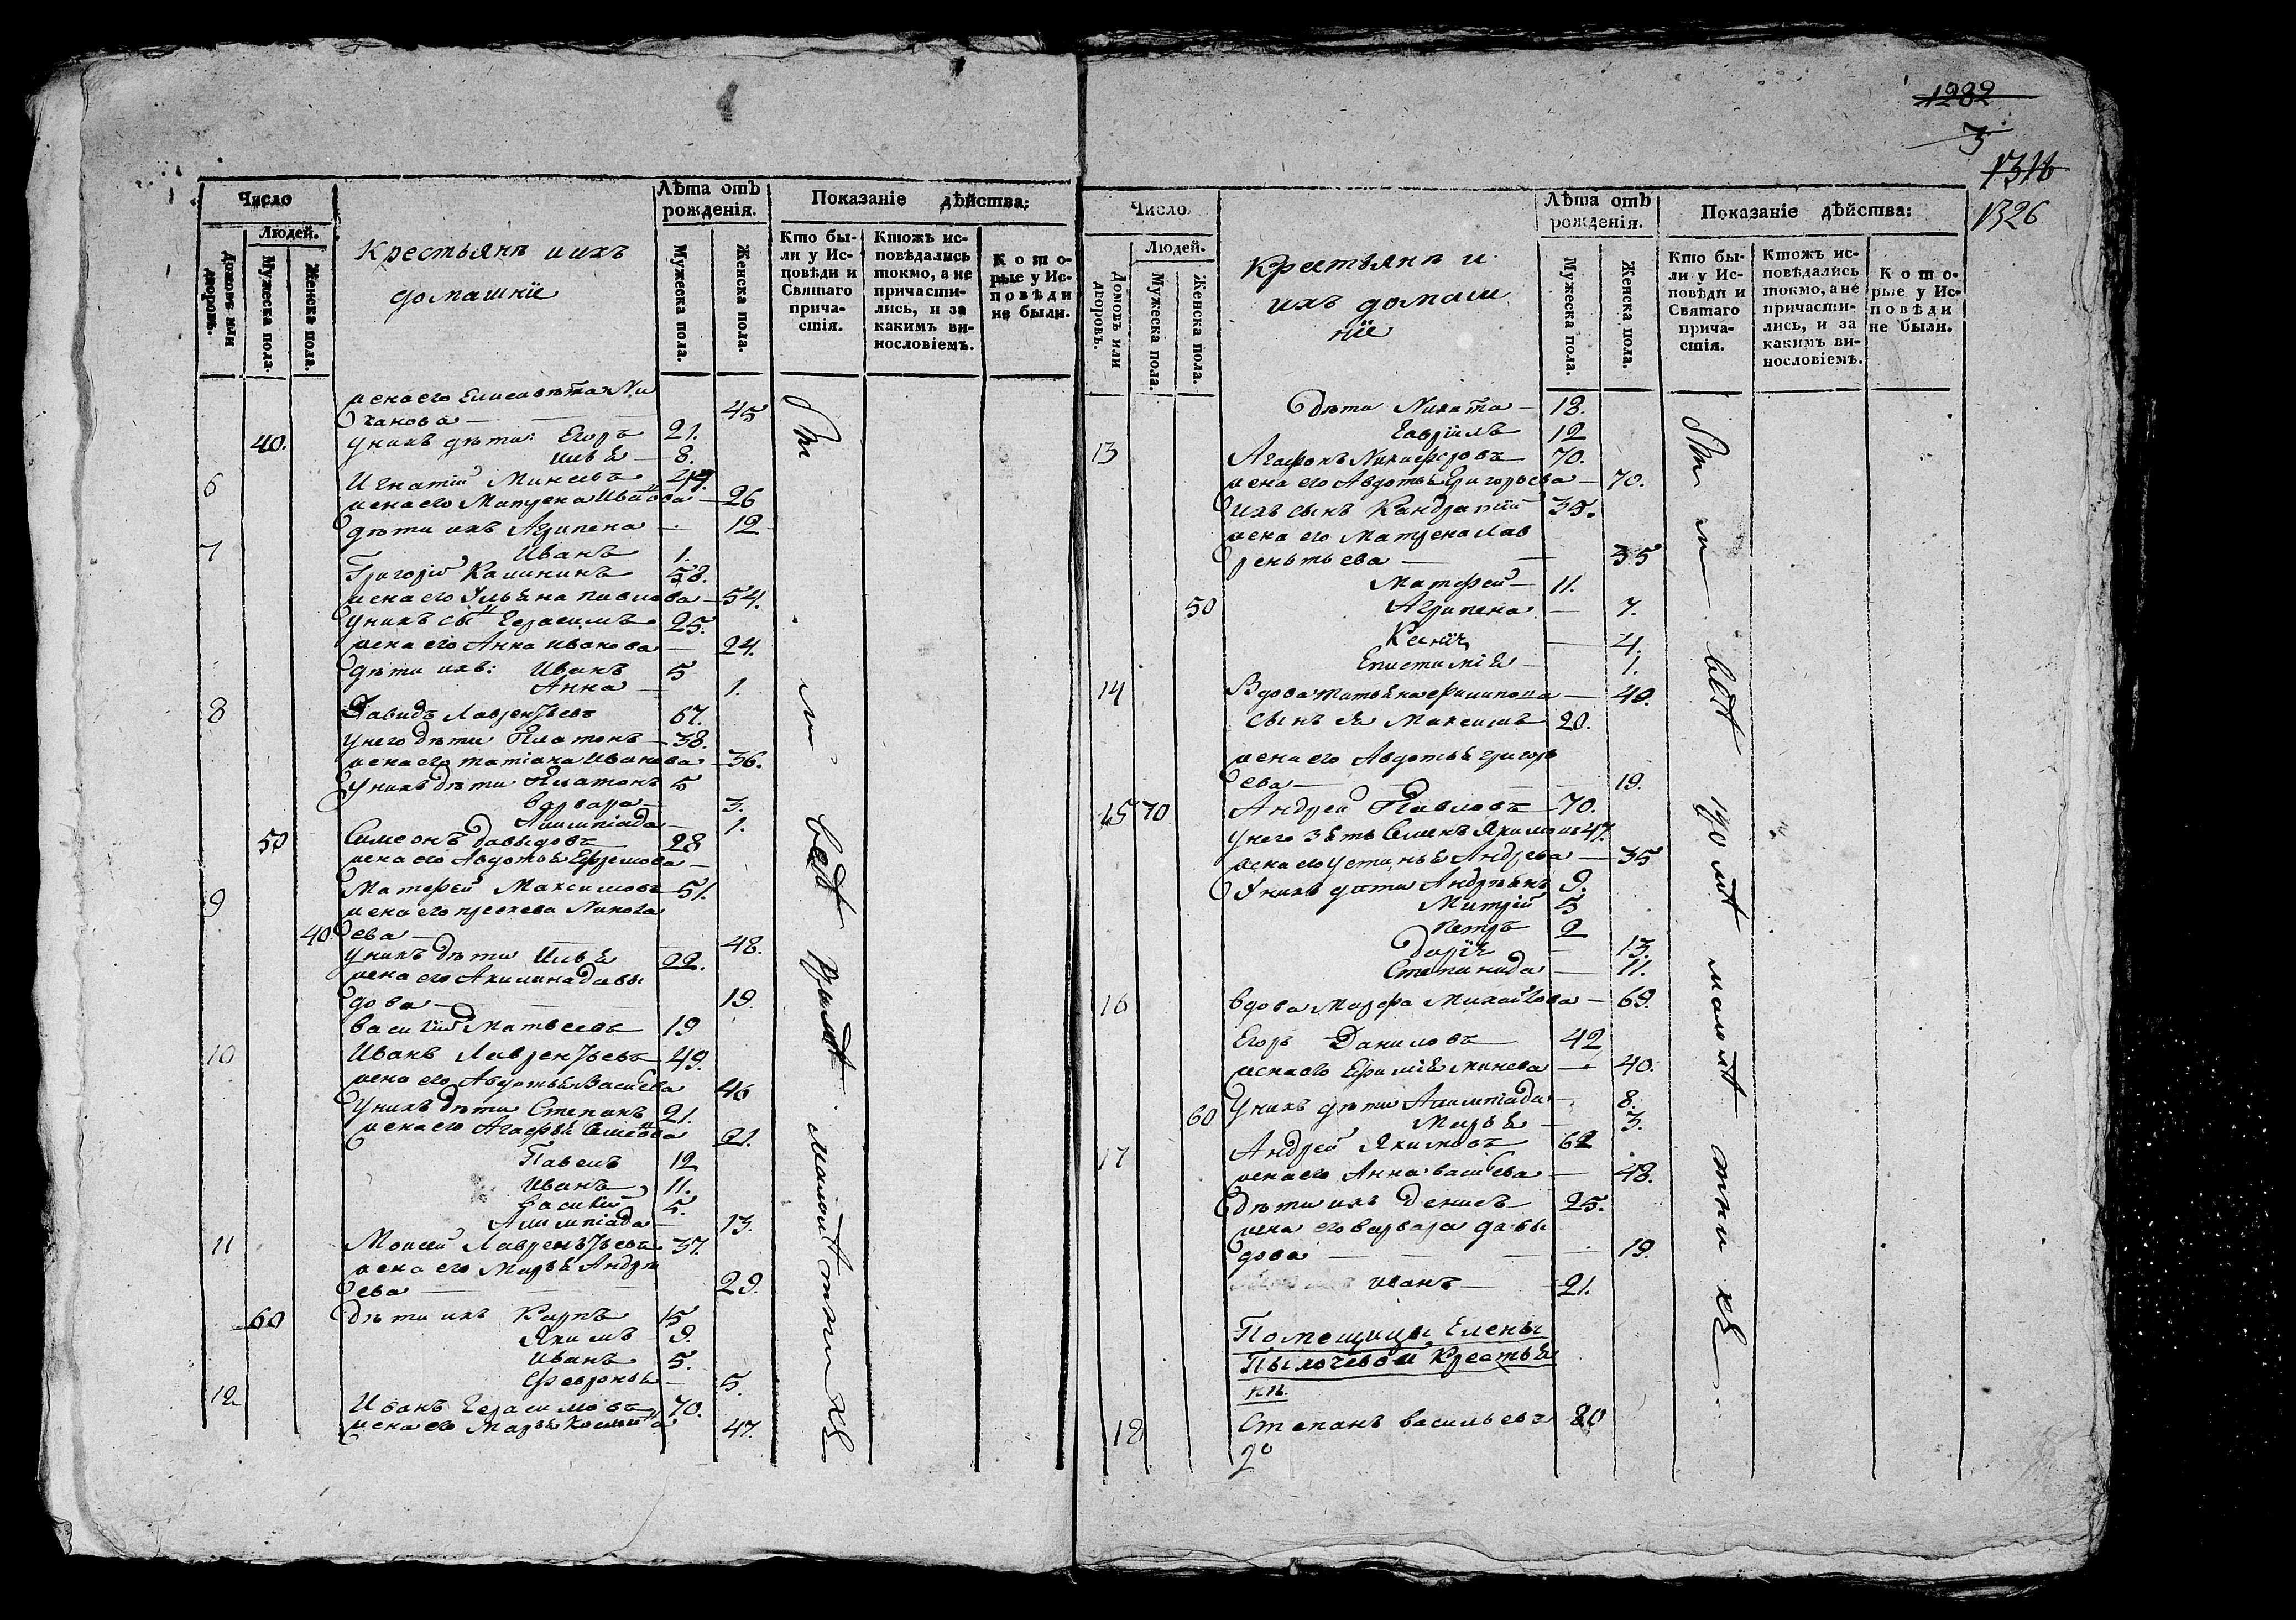 Число
Людей.
Домовъ или дворовъ.
Мужеска пола.
Женска пола.
Крестьянъ и ихъ
домашніе
Лѣта отъ
рожденія.
Мужеска пола.
Женска пола.
Показаніе дѣйства:
Кто бы-
ли у Ис-
повѣди и
Святаго
прича-
стія.
Ктожъ ис-
повѣдались
токмо, а не
причасти-
лись, и за
какимъ ви-
нословіемъ.
Кото-
рые у Ис-
повѣди
не были.
жена его Елисавѣта
чанова 45
40. у нихъ дѣти: Егоръ 21.
Илья 8.
6 Игнатій Минеевъ
жена его Матрена Иванова 26
дѣти ихъ Агрипена 12
Иванъ 1.
7 Григорій Калининъ 58.
жена его Ульяна Павлова 54.
у нихъ сынъ Герасимъ 25.
жена его Анна Иванова 24.
дѣти ихъ: Иванъ 5
Анна 1.
8 Давидъ Лаврентьевъ 67.
у него дѣти Платонъ 38.
жена его Татіана Иванова 36.
у нихъ дѣти Платонъ 5
Варвара 3.
Алимпіада 1.
50 Симеонъ Давыдовъ 28
жена его Авдотья Ефремова
9 Матфей Максимовъ 51.
жена его Праскева Никола
40. ева 48.
у нихъ дѣти Илья 22.
жена его Акилина Давы
дова 19.
Василій Матвеевъ 19
10 Иванъ Лаврентьевъ 49.
жена его Авдотья Васильева 46
у нихъ дѣти Степанъ 21.
жена его Агафья Семенова 21.
Павелъ 12
Иванъ 11.
Василій 5.
Алимпіада 13.
11 Моисей Лаврентьевъ 37.
жена его Марья Андре
ева 29.
60 дѣти ихъ Карпъ 15
Якимъ 9.
Иванъ 5.
Февронья 5.
12 Иванъ Герасимовъ 70.
жена его Марья Космина 47.
1282
3
1326
Число.
Людей.
Домовъ или дворовъ.
Мужеска пола.
Женска пола.
Крестьянъ и
ихъ домаш
ніе
Лѣта отъ
рожденія.
Мужеска пола.
Женска пола.
Показаніе дѣйства:
Кто бы-
ли у Ис-
повѣди и
Святаго
прича-
стія.
Ктожъ ис-
повѣдались
токмо, а не
причасти-
лись, и за
какимъ ви-
нословіемъ.
Кото-
рые у Ис-
повѣди
не были.
дѣти Никита 18.
Гаврілъ 12
13 Агафонъ Никифоровъ 70.
жена его Авдотья Григорьева 70.
ихъ сынъ Кандратій 35.
жена его Матрена Лав
рентьева 35
Матфей 11.
50 Агрипена 7.
Ксенія 4.
Епистимія 1.
14 Вдова Татьяна Филипова 49.
сынъ ея Максимъ 20.
жена его Авдотья Григорь
ева 19.
15 70 Андрей Павловъ 70.
у него зять Семенъ Якимовъ 47.
жена его Устинья Андреева 35
у нихъ дѣти Андреянъ 9.
Митрій 5
Петръ 2
Дарія 13.
Степанида 11.
16 Вдова Марфа Михайлова 69.
Егоръ Даниловъ 42
жена его Ефимія Минева 40.
60 у нихъ дѣти Алимпіада 8.
Марья 3.
17 Андрей Якимовъ 62
жена его Анна Васильева 48.
дѣти ихъ Денисъ 25.
жена его Варвара Давы
дова 19.
Иванъ 21.
Помещицы Елены
Крестья
не.
18 Степанъ Васильевъ 80